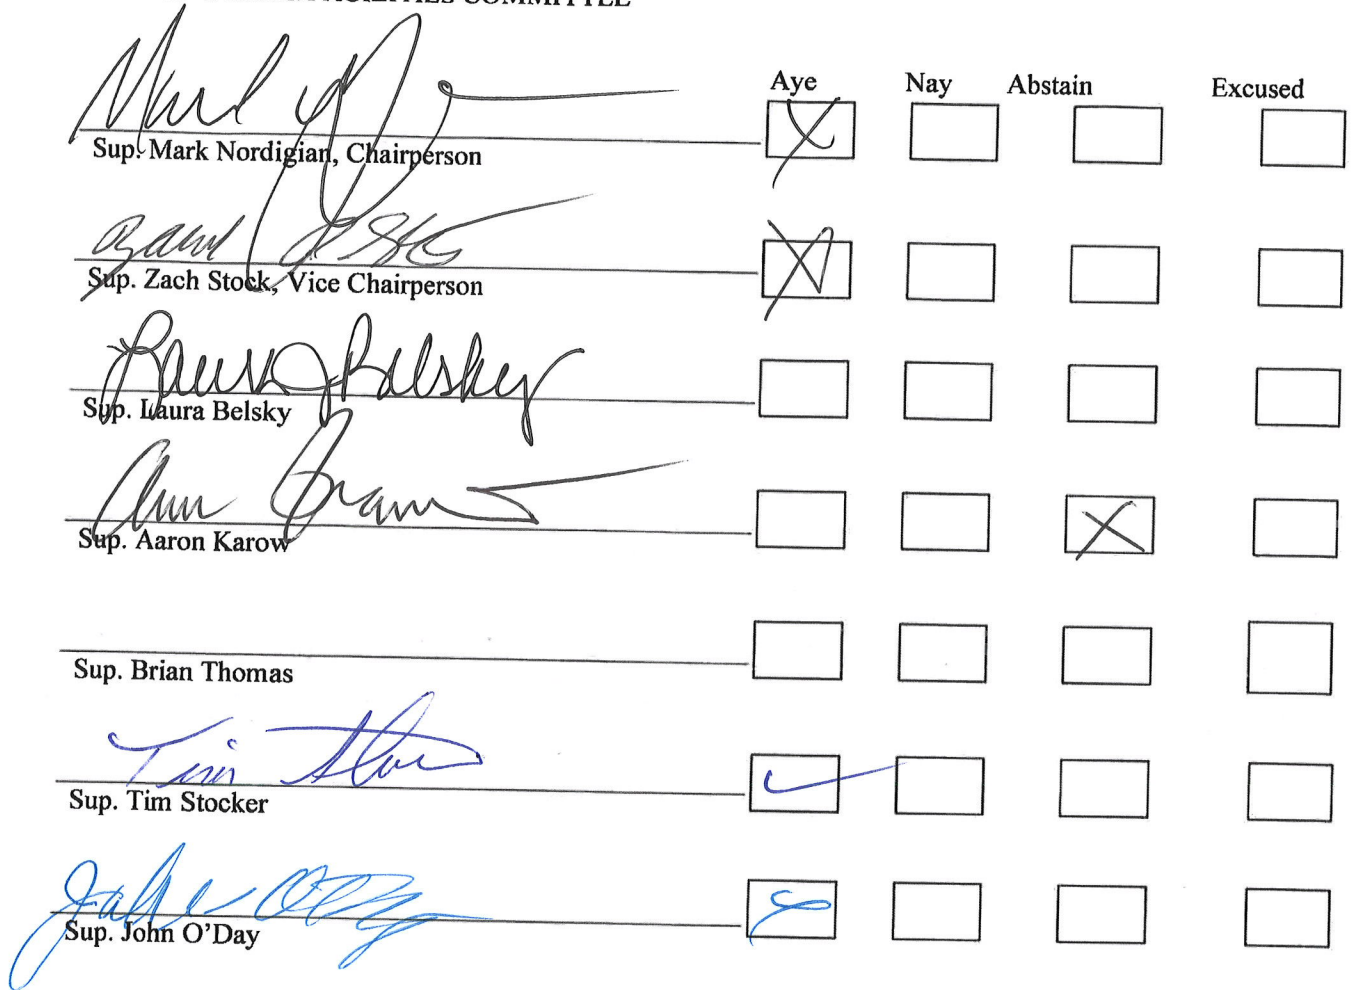 COMMITTEE
Aye Nay Abstain Excused
Sup. Mark Nordigian, Chairperson
Sup. Zach Stock, Vice Chairperson
Laura J Belsky
Sup. Laura Belsky
Sup. Aaron Karow
Sup. Brian Thomas
Tim
Sup. Tim Stocker
Sup. John O'Day